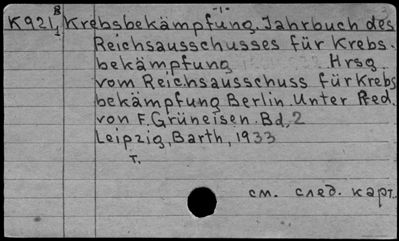 -1-
К921 8/1 Krebsbekämpfung. Jahrbuch des
Reichsausschusses für Krebs-
bekämpfung Hrsg.
vom Reichsausschuss für Krebs
bekämpfung Berlin. Unter Red.
von F. Grüneisen. Bd. 2
Leipzig, Barth, 1933
т.
см. след. карт.